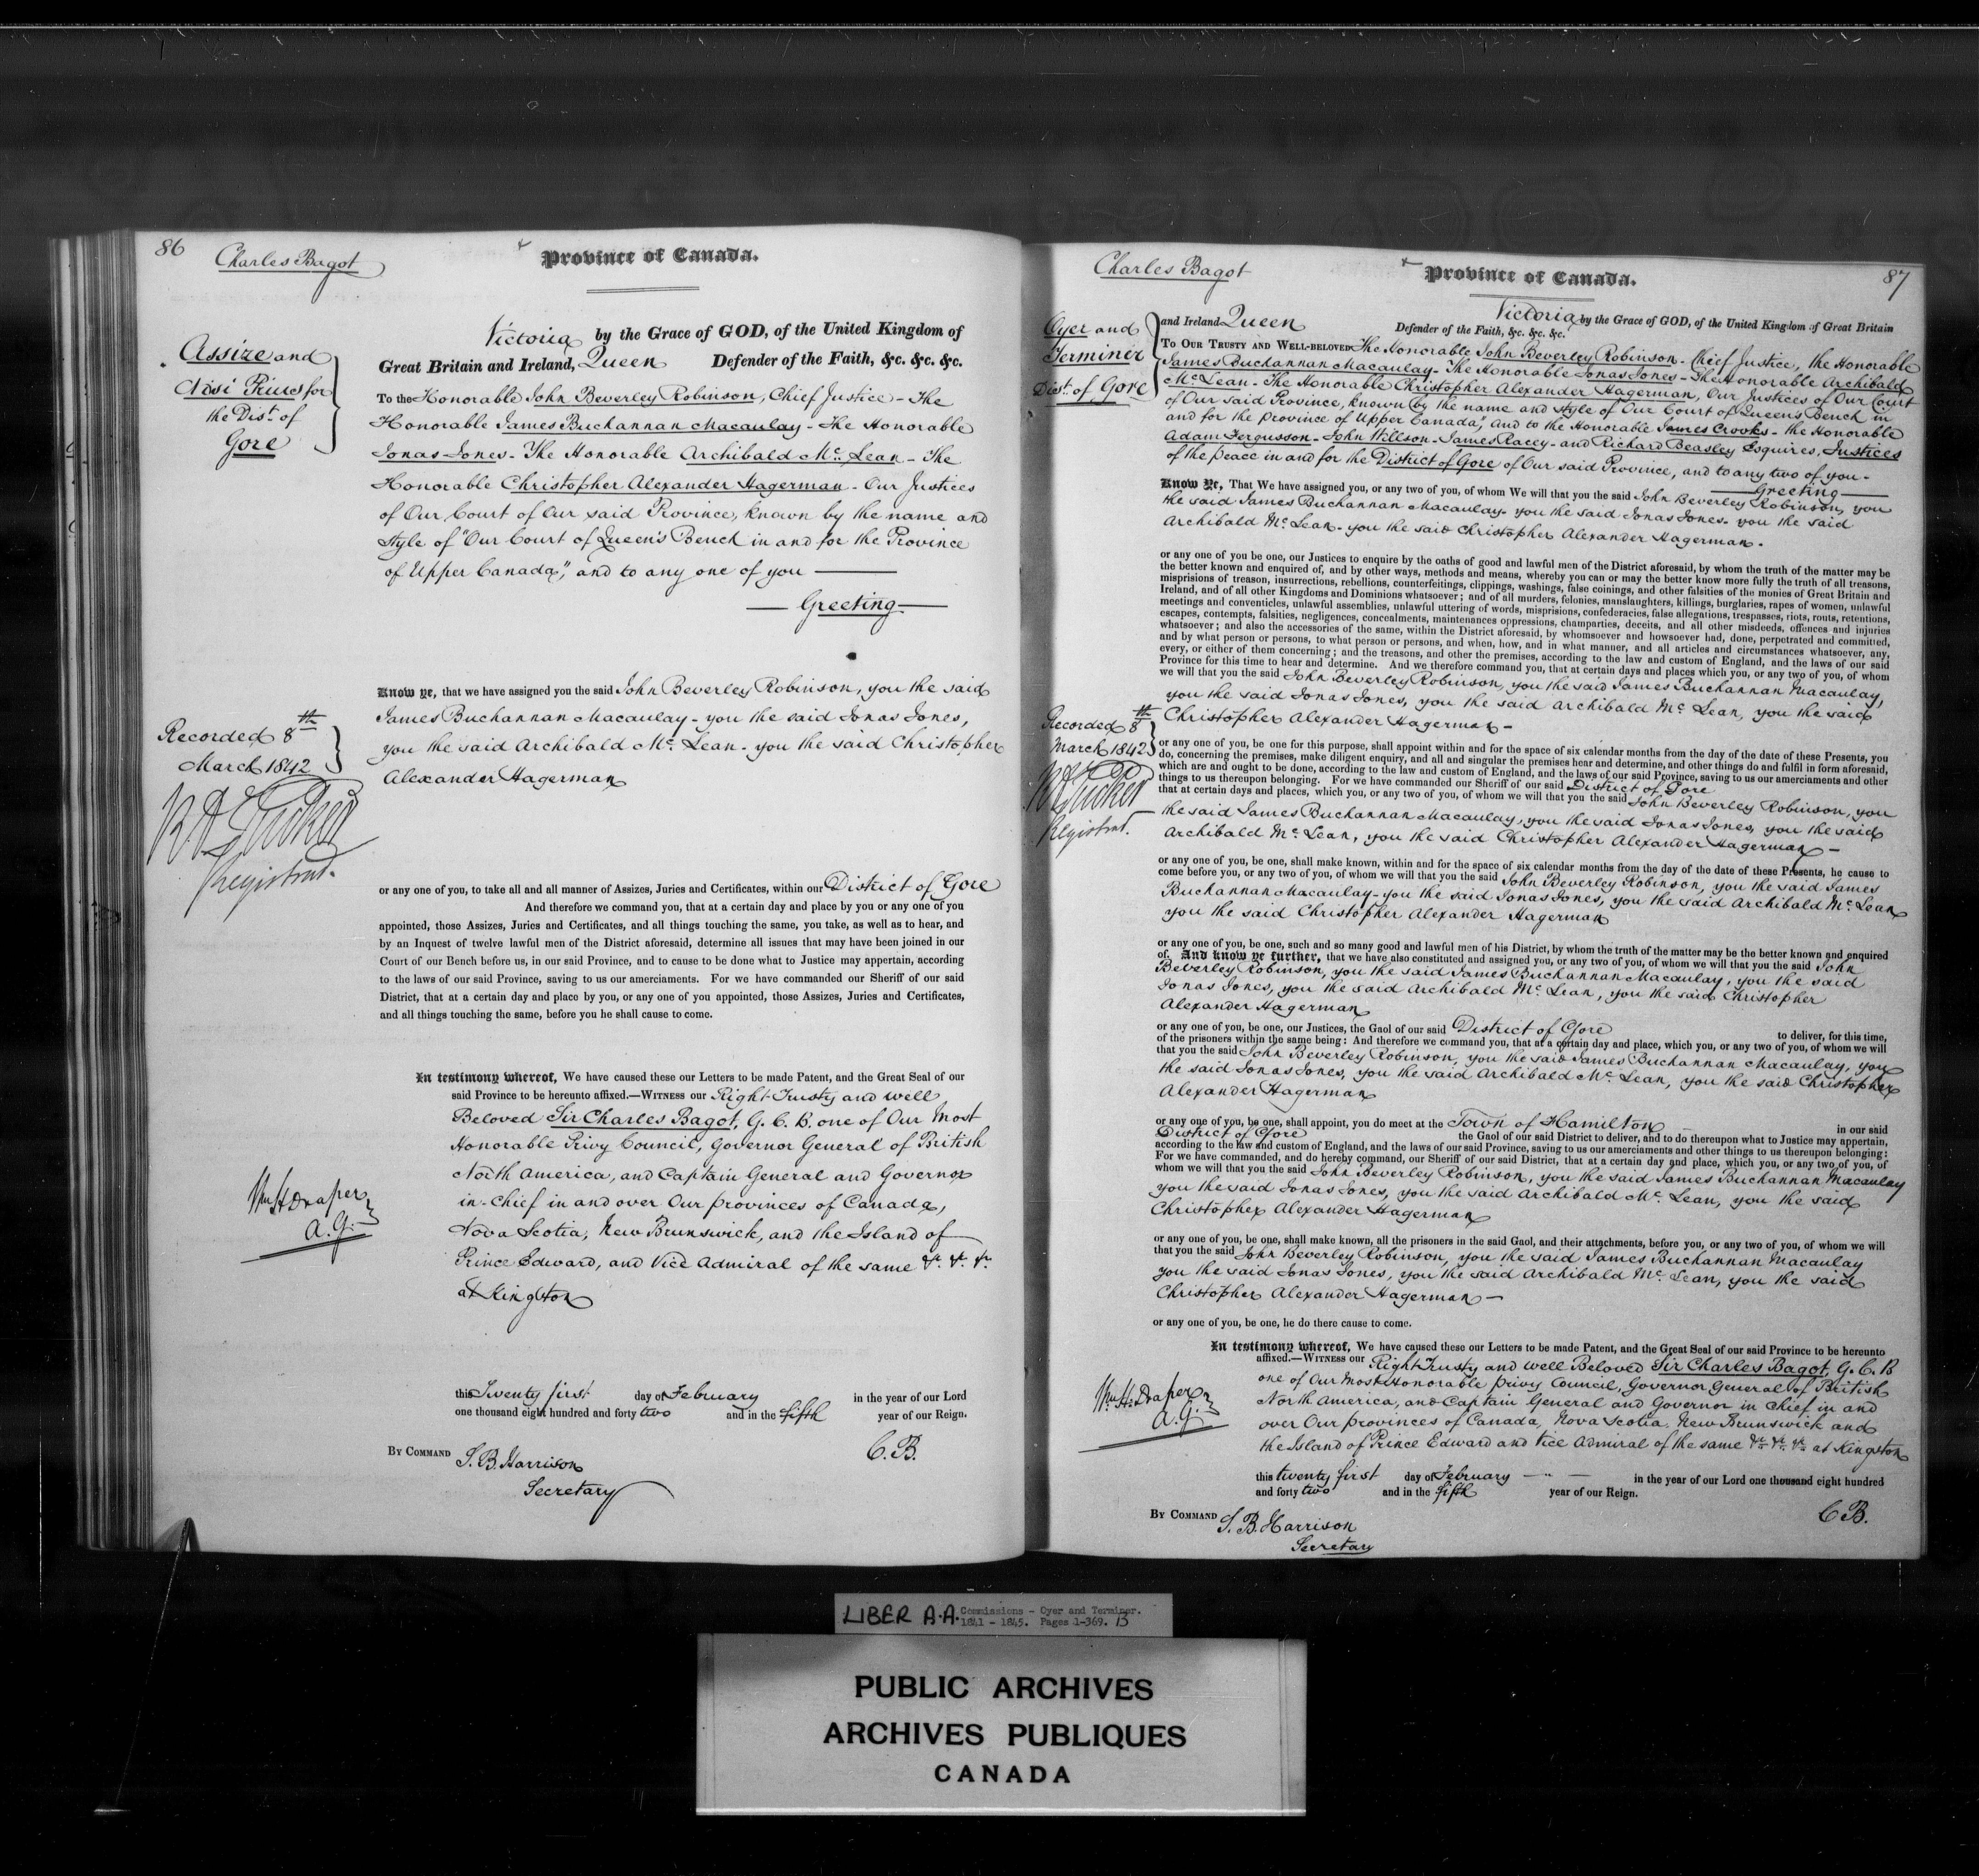 86
Charles Bagot
Province of Canada.
Assize and
Nisi Prius for
the Dist. of
Gore
Victoria by the Grace of GOD, of the United Kingdom of
Great Britain and Ireland, Queen Defender of the Faith, &c. &c. &c.
To the Honorable John Beverley Robinson, Chief Justice - The
Honorable James Buchannan Macaulay - The Honorable
Jonas Jones - The Honorable Archibald Mc. Lean - The
Honorable Christopher Alexander Hagerman - Our Justices
of Our Court of Our said Province, known by the name and
style of "Our Court of Queen's Bench in and for the Province
of Upper Canada", and to any one of you
Greeting
Know ye, that we have assigned you the said John Beverley Robinson, you the said
James Buchannan Macaulay - you the said Jonas Jones,
you the said Archibald Mc. Lean - you the said Christopher
Alexander Hagerman
Recorded 8th
March 1842
R A Tucker
Registrar.
or any one of you, to take all and all manner of Assizes, Juries and Certificates, within our District of Gore
And therefore we command you, that at a certain day and place by you or any one of you
appointed, those Assizes, Juries and Certificates, and all things touching the same, you take, as well as to hear, and
by an Inquest of twelve lawful men of the District aforesaid, determine all issues that may have been joined in our
Court of our Bench before us, in our said Province, and to cause to be done what to Justice may appertain, according
to the laws of our said Province, saving to us our amerciaments. For we have commanded our Sheriff of our said
District, that at a certain day and place by you, or any one of you appointed, those Assizes, Juries and Certificates,
and all things touching the same, before you he shall cause to come.
In testimony whereof, We have caused these our Letters to be made Patent, and the Great Seal of our
said Province to be hereunto affixed.—WITNESS our Right Trusty and well
Beloved Sir Charles Bagot, G. C. B. one of Our Most
Honorable Privy Council, Governor General of British
North America, and Captain General and Governor
in-Chief in and over Our provinces of Canada,
Nova Scotia, New Brunswick, and the Island of
Prince Edward, and Vice Admiral of the same &c. &c. &c.
at Kingston
Wm H Draper
A. G.
this Twenty first day of February in the year of our Lord
one thousand eight hundred and forty two and in the fifth year of our Reign.
C. B.
BY COMMAND S. B. Harrison
Secretary
87
Charles Bagot
Province of Canada.
Oyer and
Terminer
Dist. of Gore
Victoria by the Grace of GOD, of the United Kingdom of Great Britain
and Ireland Queen Defender of the Faith, &c. &c. &c.
TO OUR TRUSTY AND WELL-BELOVED The Honorable John Beverley Robinson - Chief Justice, the Honorable
James Buchannan Macaulay - The Honorable Jonas Jones - The Honorable Archibald
Mc. Lean - The Honorable Christopher Alexander Hagerman, Our Justices of Our Court
of Our said Province, known by the name and style of "Our Court of Queen's Bench in
and for the Province of Upper Canada", and to the Honorable James Crooks - the Honorable
Adam Fergusson - John Willson - James Racey - and Richard Beasley Esquires, Justices
of the peace in and for the District of Gore of Our said Province, and to any two of you -
Greeting
Know Ye, That We have assigned you, or any two of you, of whom We will that you the said John Beverley Robinson, you
the said James Buchannan Macaulay - you the said Jonas Jones - you the said
Archibald Mc. Lean - you the said Christopher Alexander Hagerman.
or any one of you be one, our Justices to enquire by the oaths of good and lawful men of the District aforesaid, by whom the truth of the matter may be
the better known and enquired of, and by other ways, methods and means, whereby you can or may the better know more fully the truth of all treasons,
misprisions of treason, insurrections, rebellions, counterfeitings, clippings, washings, false coinings, and other falsities of the monies of Great Britain and
Ireland, and of all other Kingdoms and Dominions whatsoever; and of all murders, felonies, manslaughters, killings, burglaries, rapes of women, unlawful
meetings and conventicles, unlawful assemblies, unlawful uttering of words, misprisions, confederacies, false allegations, trespasses, riots, routs, retentions,
escapes, contempts, falsities, negligences, concealments, maintenances oppressions, champarties, deceits, and all other misdeeds, offences and injuries
whatsoever; and also the accessories of the same, within the District aforesaid, by whomsoever and howsoever had, done, perpetrated and committed,
and by what person or persons, to what person or persons, and when, how, and in what manner, and all articles and circumstances whatsoever, any,
every, or either of them concerning; and the treasons, and other the premises, according to the law and custom of England, and the laws of our said
Province for this time to hear and determine. And we therefore command you, that at certain days and places which you, or any two of you, of whom
we will that you the said John Beverley Robinson, you the said James Buchannan Macaulay,
you the said Jonas Jones, you the said Archibald Mc. Lean, you the said
Christopher Alexander Hagerman -
Recorded 8th
March 1842
R A Tucker
Registrar.
or any one of you, be one for this purpose, shall appoint within and for the space of six calendar months from the day of the date of these Presents, you
do, concerning the premises, make diligent enquiry, and all and singular the premises hear and determine, and other things do and fulfil in form aforesaid,
which are and ought to be done, according to the law and custom of England, and the laws of our said Province, saving to us our amerciaments and other
things to us thereupon belonging. For we have commanded our Sheriff of our said District of Gore
that at certain days and places, which you, or any two of you, of whom we will that you the said John Beverley Robinson, you
the said James Buchannan Macaulay, you the said Jonas Jones, you the said
Archibald Mc. Lean, you the said Christopher Alexander Hagerman -
or any one of you, be one, shall make known, within and for the space of six calendar months from the day of the date of these Presents, he cause to
come before you, or any two of you, of whom we will that you the said John Beverley Robinson, you the said James
Buchannan Macaulay - you the said Jonas Jones, you the said Archibald Mc. Lean
you the said Christopher Alexander Hagerman
or any one of you, be one, such and so many good and lawful men of his District, by whom the truth of the matter may be the better known and enquired
of. And know ye further, that we have also constituted and assigned you, or any two of you, of whom we will that you the said John
Beverley Robinson, you the said James Buchannan Macaulay, you the said
Jonas Jones, you the said Archibald Mc. Lean, you the said Christopher
Alexander Hagerman
or any one of you, be one, our Justices, the Gaol of our said District of Gore to deliver, for this time,
of the prisoners within the same being: And therefore we command you, that at a certain day and place, which you, or any two of you, of whom we will
that you the said John Beverley Robinson, you the said James Buchannan Macaulay, you
the said Jonas Jones, you the said Archibald Mc. Lean, you the said Christopher
Alexander Hagerman
or any one of you, be one, shall appoint, you do meet at the Town of Hamilton in our said
District of Gore the Gaol of our said District to deliver, and to do thereupon what to Justice may appertain,
according to the law and custom of England, and the laws of our said Province, saving to us our amerciaments and other things to us thereupon belonging:
For we have commanded, and do hereby command, our Sheriff of our said District, that at a certain day and place, which you, or any two of you, of
whom we will that you the said John Beverley Robinson, you the said James Buchannan Macaulay
you the said Jonas Jones, you the said Archibald Mc. Lean, you the said
Christopher Alexander Hagerman
or any one of you, be one, shall make known, all the prisoners in the said Gaol, and their attachments, before you, or any two of you, of whom we will
that you the said John Beverley Robinson, you the said James Buchannan Macaulay
you the said Jonas Jones, you the said Archibald Mc. Lean, you the said
Christopher Alexander Hagerman -
or any one of you, be one, he do there cause to come.
In testimony whereof, We have caused these our Letters to be made Patent, and the Great Seal of our said Province to be hereunto
affixed.—WITNESS our Right Trusty and well Beloved Sir Charles Bagot, G. C. B
one of Our Most Honorable privy Council, Governor General of British
North America, and Captain General and Governor in chief in and
over Our provinces of Canada, Nova Scotia, New Brunswick and
the Island of Prince Edward and Vice Admiral of the same &c. &c. &c. at Kingston
Wm. H. Draper
A. G.
this twenty first day of February in the year of our Lord one thousand eight hundred
and forty two and in the fifth year of our Reign.
C B.
BY COMMAND S. B. Harrison
Secretary
LIBER A.A. Commissions - Oyer and Terminer.
1841 - 1845. Pages 1-369. 13
PUBLIC ARCHIVES
ARCHIVES PUBLIQUES
CANADA